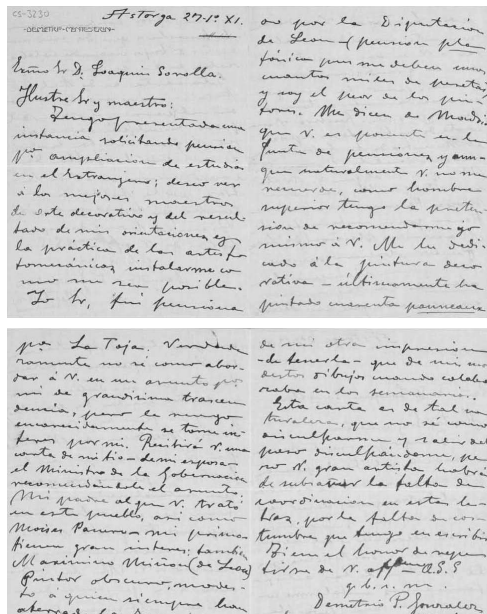 CS-3230
Astorga 27-1º XI.
Exmo Sr D. Joaquin Sorolla.
Ilustre Sr y maestro:
Tengo presentada una
instancia solicitando pension
pª ampliacion de estudios
en el Extranjero; deseo ver
á los mejores maestros
de arte decorativo y del resul
tado de mis orientaciones en
la práctica de las artes fo
tomecánicas, instalarme co
mo me sea posible.
Yo Sr, fui pensiona
do por la Diputacion
de Leon (pension pla
tónica pues me deben unos
cuantos miles de pesetas)
y soy el peor de los pin
tores. Me dicen de Madrid
que V. es ponente en la
Junta de pensiones, y aun
que naturalmente V. no me
recuerde, como hombre
superior tengo la preten
sion de recomendarme yo
mismo á V. Me he dedi
cado á la pintura deco
rativa - últimamente he
pintado cuarenta panneaux
para La Toja. Verdade
ramente no sé como abor
dar á V. en un asunto pª
mi de grandisima trascen
dencia, pero le ruego
encarecidamente se tome in
teres por mi. Recibirá V. una
carta de mi tio - demi esposa -
el Ministro de la Gobernacion
recomendandole el asunto.
Mi padre al que V. trató
en este pueblo, asi como
Moises Panero - mi primo
tienen gran interes; tambien
Maximino Miñon (de Leon)
Pintor obscuro, modes-
to á quien siempre han
de mi otra impresion
- de tenerla - que de mis mo
destos dibujos cuando colabo
raba en los semanarios.
Esta carta es de tal na
turaleza, que no sé como
disculparme y salir del
paso disculpandome, pe
ro V. gran artista habrá
de subsanar la falta de
coordinacion en estas le
tras, por la falta de cos
tumbre que tengo en escribir
Tiene el honor de repe
tirse de V. affmo S.S
q.b.s.m.
Demetrio P. Gonzalez